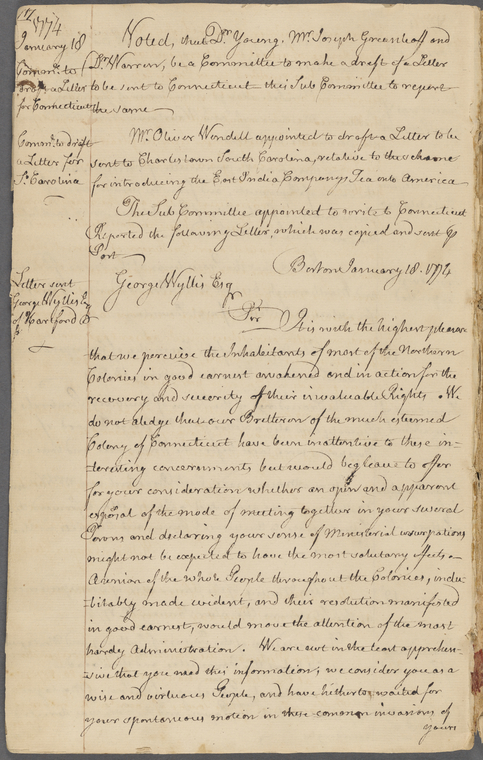 1774
January 18
Comm.ee to
draft a Letter
for Connecticut
Noted, that Dr. Young, Mr. Joseph Greenleaf and
Dr. Warren, be a Committee to make a draft of a Letter
to be sent to Connecticut this Sub Committee to report
the same
Comm.ee to draft
a Letter for
So. Carolina
Mr. Oliver Wendell appointed to draft a Letter to be
sent to Charlestown South Carolina, relative to the scheme
for introducing the East India Companys Tea into America
The Sub Committee appointed to write to Connecticut
Reported the following Letter, which was copied and sent
Post
Boston January 18. 1774
Letter sent
George Wyllis Esq
of Hartford
George Wyllis Esqr
Sir It is with the highest pleasure
that we perceive the Inhabitants of most of the Northern
Colonies in good earnest awakened and in action for the
recovery and security of their invaluable Rights. We
do not aledge that our Bretheren of the much esteemed
Colony of Connecticut have been inattentive to these in-
-teresting concernments but would beg leave to offer
for your consideration whether an open and apparent
espousal of the mode of meeting together in your several
Towns and declaring your sense of Ministerial usurpations
might not be expected to have the most salutary effects.
A union of the whole People throughout the Colonies, indu-
-bitably made evident, and their resolution manifested
in good earnest, would move the attention of the most
hardy Administration. We are not in the least apprehen-
-sive that you need this information; we consider you as a
wise and virtuous People, and have hitherto waited for
your spontaneous motion in these common invasions of
yours